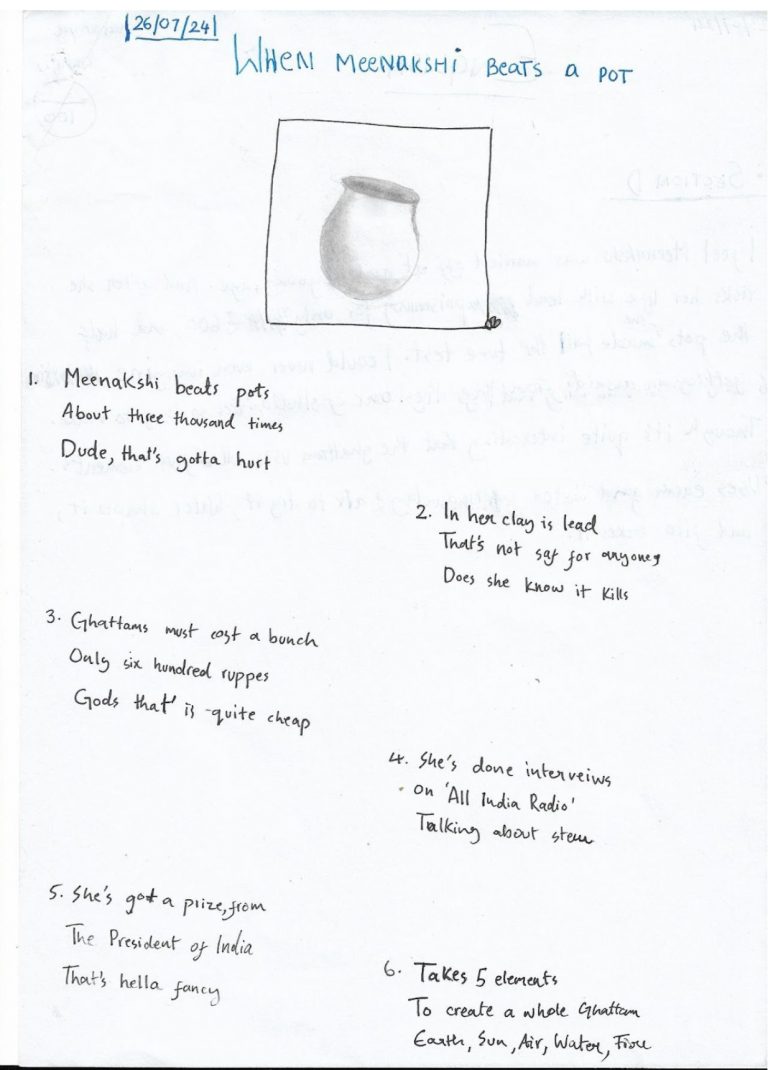 26/07/24
WHEN MEENAKSHI BEATS A POT
1. Meenakshi beats pots
About three thousand times
Dude, that's gotta hurt
2. In her clay is lead
That's not saf for anyone,
Does she know it kills
3. Ghattams must cost a bunch
Only six hundred ruppes
Gods that' is quite cheap
4. She's done interveiws
on 'All India Radio'
Talking about stem
5. She's got a prize, from
The President of India
That's hella fancy
6. Takes 5 elements
To create a whole Ghattam
Earth, Sun, Air, Water, Fire